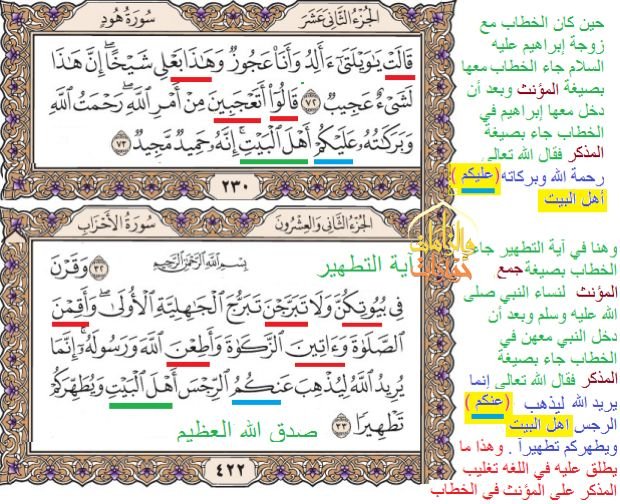 الجزء الثاني عشر
سورة هود
قَالَتْ يَٰوَيْلَتَىٰٓ ءَأَلِدُ وَأَنَا۠ عَجُوزٌ وَهَٰذَا بَعْلِي شَيْخًا ۖ إِنَّ هَٰذَا
لَشَىْءٌ عَجِيبٌ ٧٢ قَالُوٓا۟ أَتَعْجَبِينَ مِنْ أَمْرِ اللَّهِ ۖ رَحْمَتُ اللَّهِ
وَبَرَكَٰتُهُۥ عَلَيْكُمْ أَهْلَ الْبَيْتِ ۚ إِنَّهُۥ حَمِيدٌ مَّجِيدٌ ٧٣
٢٣٠
حين كان الخطاب مع
زوجة إبراهيم عليه
السلام جاء الخطاب معها
بصيغة المؤنث وبعد أن
دخل معها إبراهيم في
الخطاب جاء بصيغة
المذكر فقال الله تعالى
رحمة الله وبركاته (عليكم )
أهل البيت
الجزء الثاني والعشرون
سورة الأحزاب
آية التطهير
بِسْمِ اللَّهِ الرَّحْمَٰنِ الرَّحِيمِ
٣٢ وَقَرْنَ
فِي بُيُوتِكُنَّ وَلَا تَبَرَّجْنَ تَبَرُّجَ الْجَٰهِلِيَّةِ الْأُولَىٰ ۖ وَأَقِمْنَ
الصَّلَوٰةَ وَءَاتِينَ الزَّكَوٰةَ وَأَطِعْنَ اللَّهَ وَرَسُولَهُۥٓ ۚ إِنَّمَا
يُرِيدُ اللَّهُ لِيُذْهِبَ عَنكُمُ الرِّجْسَ أَهْلَ الْبَيْتِ وَيُطَهِّرَكُمْ
تَطْهِيرًا ٣٣
صدق الله العظيم
٤٢٢
وهنا في آية التطهير جاء
الخطاب بصيغة جمع
المؤنث لنساء النبي صلى
الله عليه وسلم وبعد أن
دخل النبي معهن في
الخطاب جاء بصيغة
المذكر فقال الله تعالى إنما
يريد الله ليذهب (عنكم )
الرجس اهل البيت
ويطهركم تطهيرآ . وهذا ما
يطلق عليه في اللغه تغليب
المذكر على المؤنث في الخطاب